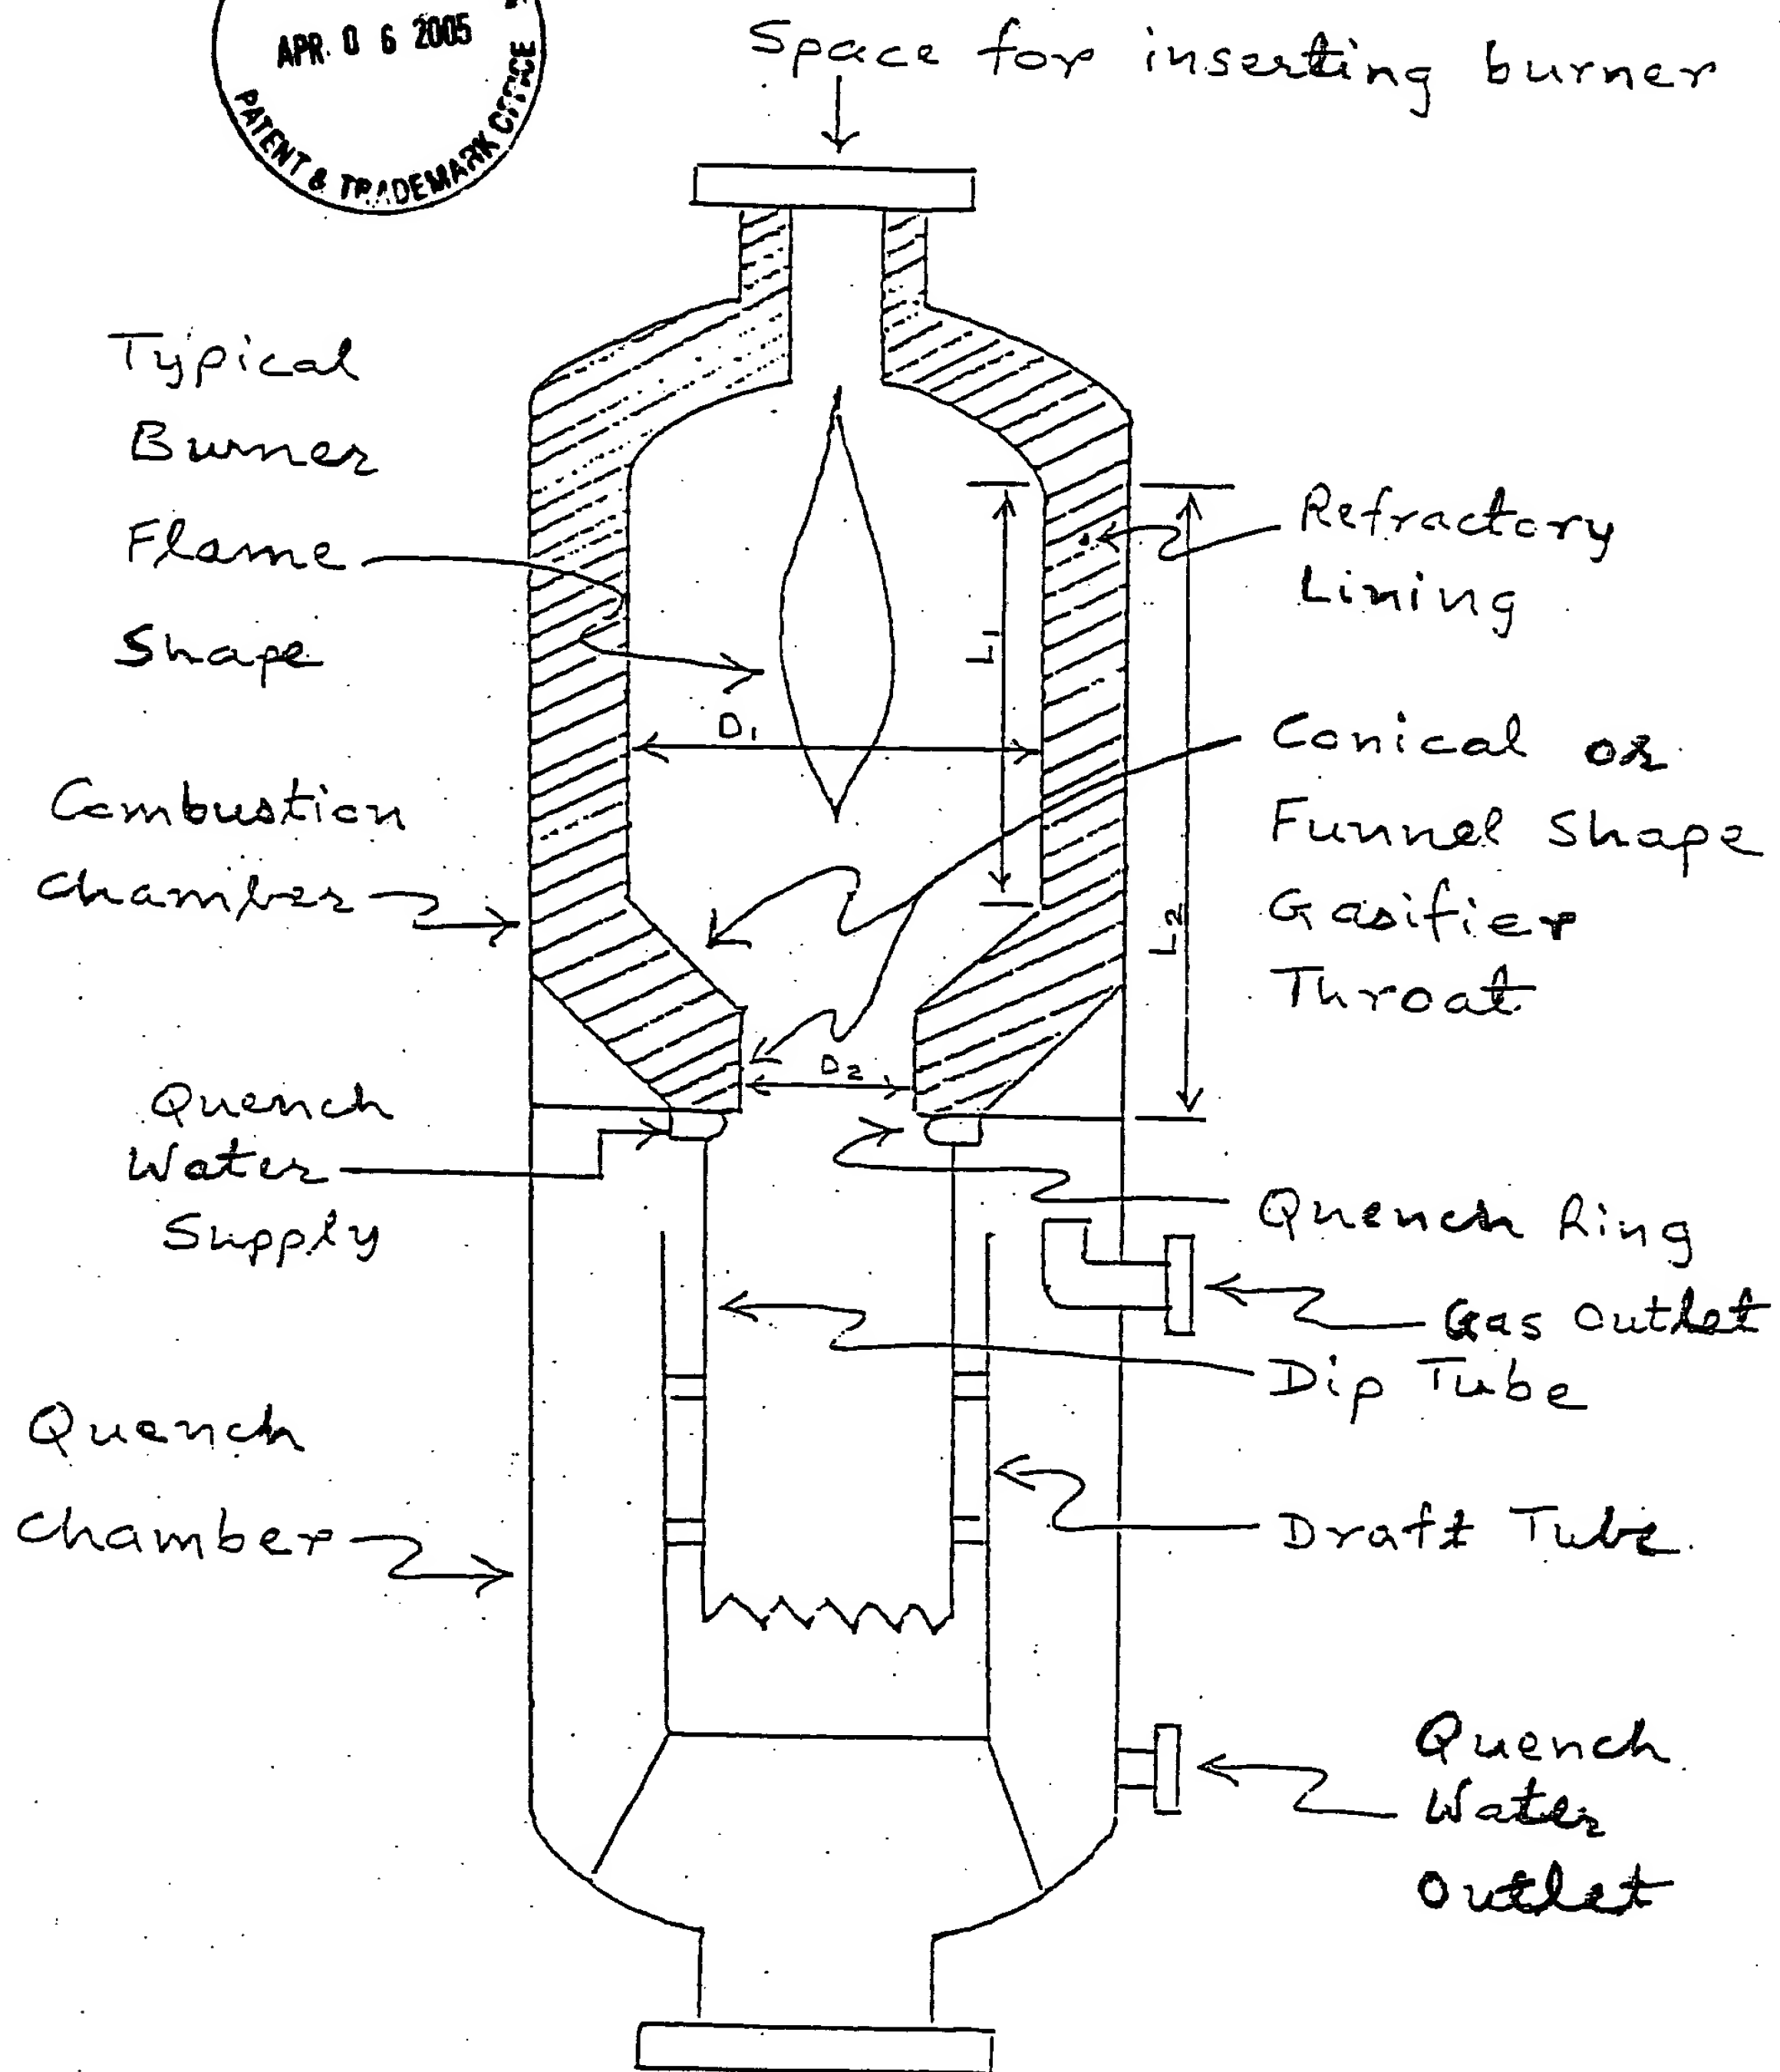 APR. 0 6 2005
PATENT & TRADEMARK OFFICE
Space for inserting burner
Typical
Burner
Flame
Shape
Refractory
Lining
L1
D1
Conical or
Funnel Shape
Gasifier
Throat
Combustion
Chamber
L2
D2
Quench
Water
Supply
Quench Ring
Gas Outlet
Dip Tube
Quench
Chamber
Draft Tube
Quench
Water
Outlet